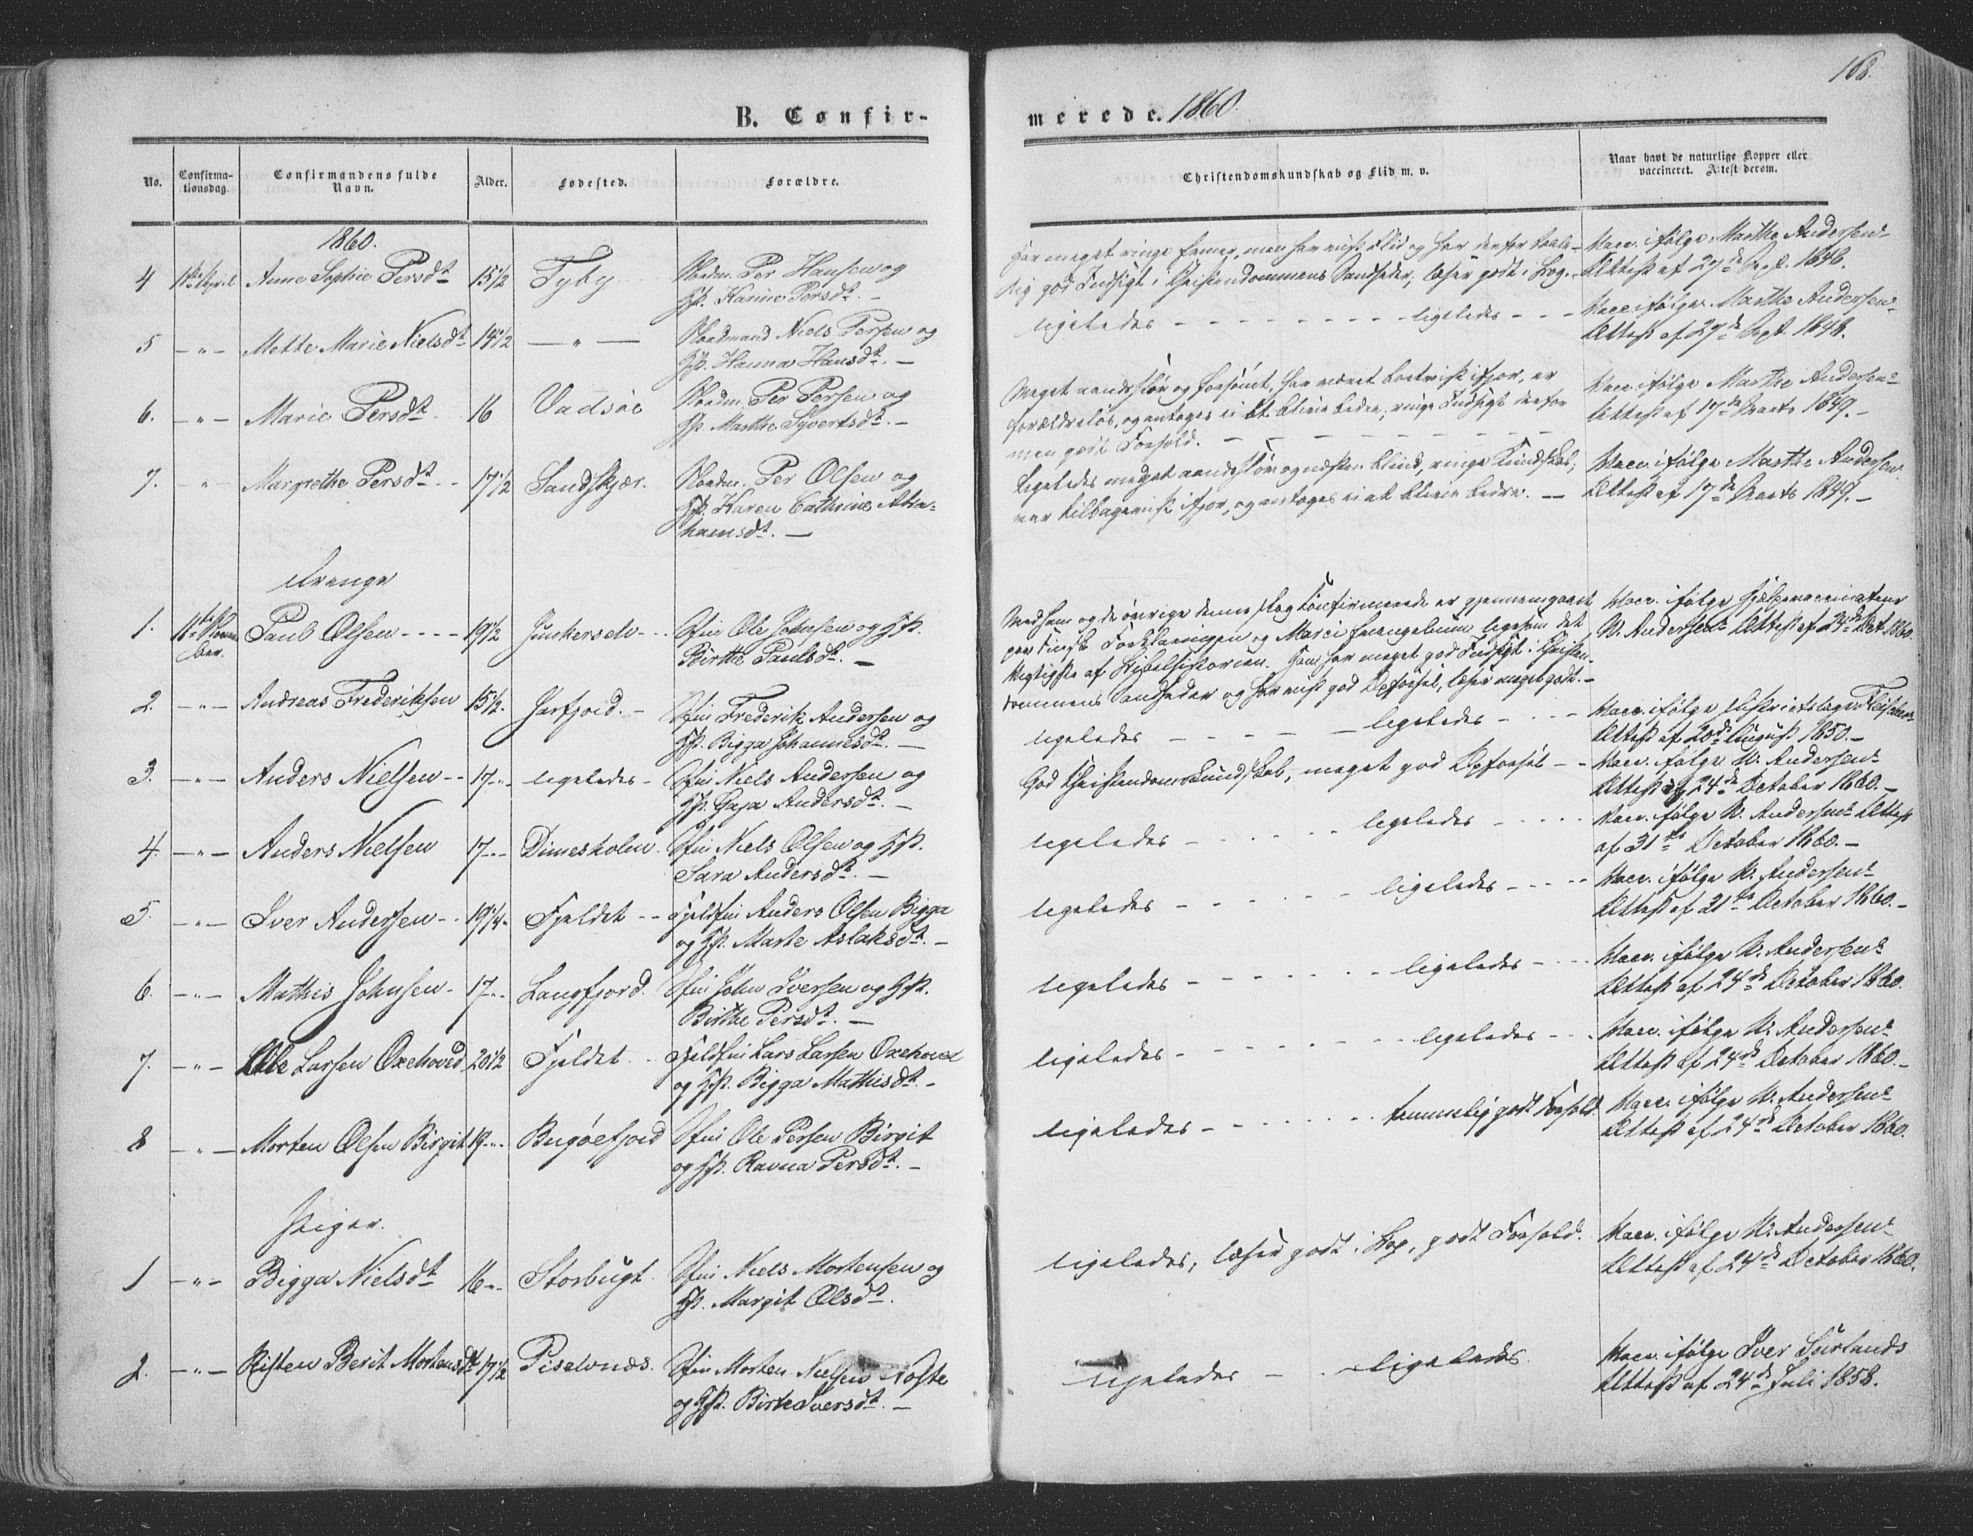 168.
B. Confir-
merede. 1860.
No.
Confirma-
tionsdag.
Confirmandens fulde
Navn.
Alder.
Fødested.
Forældre.
Christendomskundskab og Flid m. v.
Naar havt de naturlige Kopper eller
vaccineret. Attest derom.
1860.
4 1ste April Anne Sophie Persdt 15 1/2 Tyby Nordm. Per Hansen og
H. Karine Persdt. —
Har meget ringe Evner, men har viist Flid og har derfor taale-
lig god Indsigt i Christendommens Sandheder, læser godt i Bog.
Vacc. ifølge Marthe Andersens
Attest af 27de Sept. 1848.
5 — " — Mette Marie Nielsdt 14 1/2 — " — Nordmand Niels Persen og
H. Hanna Hansdt. —
ligeledes - - - - ligeledes - - -
Vacc. ifølge Marthe Andersens
Attest af 27de Sept. 1848.
6. — " — Marie Persdt. 16 Vadsøe Nordm. Per Persen og
H. Marthe Syvertsdt. —
Meget aandssløv og forsømt, har været bortviist ifjor, er
forældreløs, og antages ei at blive bedre, ringe Indsigt derfor
men godt Forhold.
Vacc. ifølge Marthe Andersens
Attest af 17de Marts 1849. —
7. - " - Margrethe Persdt. 17 1/2 Sandskjær. Nordm. Per Olsen og
H. Karen Cathrine Abra-
hamsdt. —
Ligeledes meget aandssløv og næsten blind, ringe Kundskab,
var tilbageviist ifjor, og antages ei at blive bedre. —
Vacc. ifølge Marthe Andersens
Attest af 17de Marts 1849. —
Drenge
1. 11te Novem-
ber. Paul Olsen - - - - 19 1/2 Junkerselv - - Ofin Ole Johnsen og H.
Birthe Paulsdt. —
Med ham og de øvrige denne Dag Confirmerede er gjennemgaaet
Forklaringen og Marci Evangelium ligesom det
vigtigste af Bibelhistorien. Han har meget god Indsigt i Christen-
dommens Sandheder og har viist god Opførsel, læser meget godt. —
Vacc. ifølge Hjælpevaccinateur
N. Andersens Attest af 24de Oct. 1860.
2. — " — Andreas Frederiksen 15 1/2. Jarfjord. — Ofin Frederik Andersen og
H. Bigga Johannesdt. —
ligeledes - - - - ligeledes - - - -
Vacc. ifølge Districtslæge
Attest af 20de August 1850. —
3. — " — Anders Nielsen - - 17 - " - ligeledes - Ofin Niels Andersen og
H. Gaja Andersdt. —
God Christendomskundskab, meget god Opførsel - -
Vacc. ifølge N. Andersens
Attest af 24de October 1860. —
4. — " — Anders Nielsen 17 - " - Dimesholm. Ofin Niels Olsen og H.
Sara Andersdt. —
ligeledes - - - - ligeledes - - - -
Vacc. ifølge N. Andersens Attest
af 31te October 1860. —
5. — " — Iver Andersen - - 19 1/4. Fjeldet - - Fjeldfin Anders Olsen Bigga
og H. Marte Aslaksdt. —
ligeledes - - - - ligeledes - - - -
Vacc. ifølge N. Andersens
Attest af 21de October 1860. —
6. — " — Mathis Johnsen - 17 - " - Langfjord. Ofin John Iversen og H.
Birthe Persdt. —
ligeledes - - - - ligeledes - - - -
Vacc. ifølge N. Andersens
Attest af 24de October 1860.
7. — " — Ole Larsen Oxehoved 20 1/2 Fjeldet. - - Fjeldfin Lars Larsen Oxehoved
og H. Bigga Mathisdt. —
ligeledes - - - - ligeledes - - - -
Vacc. ifølge N. Andersens
Attest af 24de October 1860. —
8 — " — Morten Olsen Birgit 19 - " - Bugøefjord Ofin Ole Persen Birgit
og H. Ravna Persdt. —
ligeledes - - - - temmelig godt Forhold.
Vacc. ifølge N. Andersens
Attest af 24de October 1860.
Piger.
1 — " — Bigga Nielsdt 16 - " - Storbugt. Ofin Niels Mortensen og
H. Margit Olsdt.
ligeledes, læser godt i Bog, godt Forhold.
Vacc. ifølge N. Andersens
Attest af 24de October 1860.
2. — " — Risten Berit Mortensdt 17 1/2 Piselvnæs. Ofin Morten Nielsen Noste
og H. Birte Iversdt. —
ligeledes - - ligeledes.
Vacc. ifølge Iver Surlands
Attest af 24de Juli 1858.